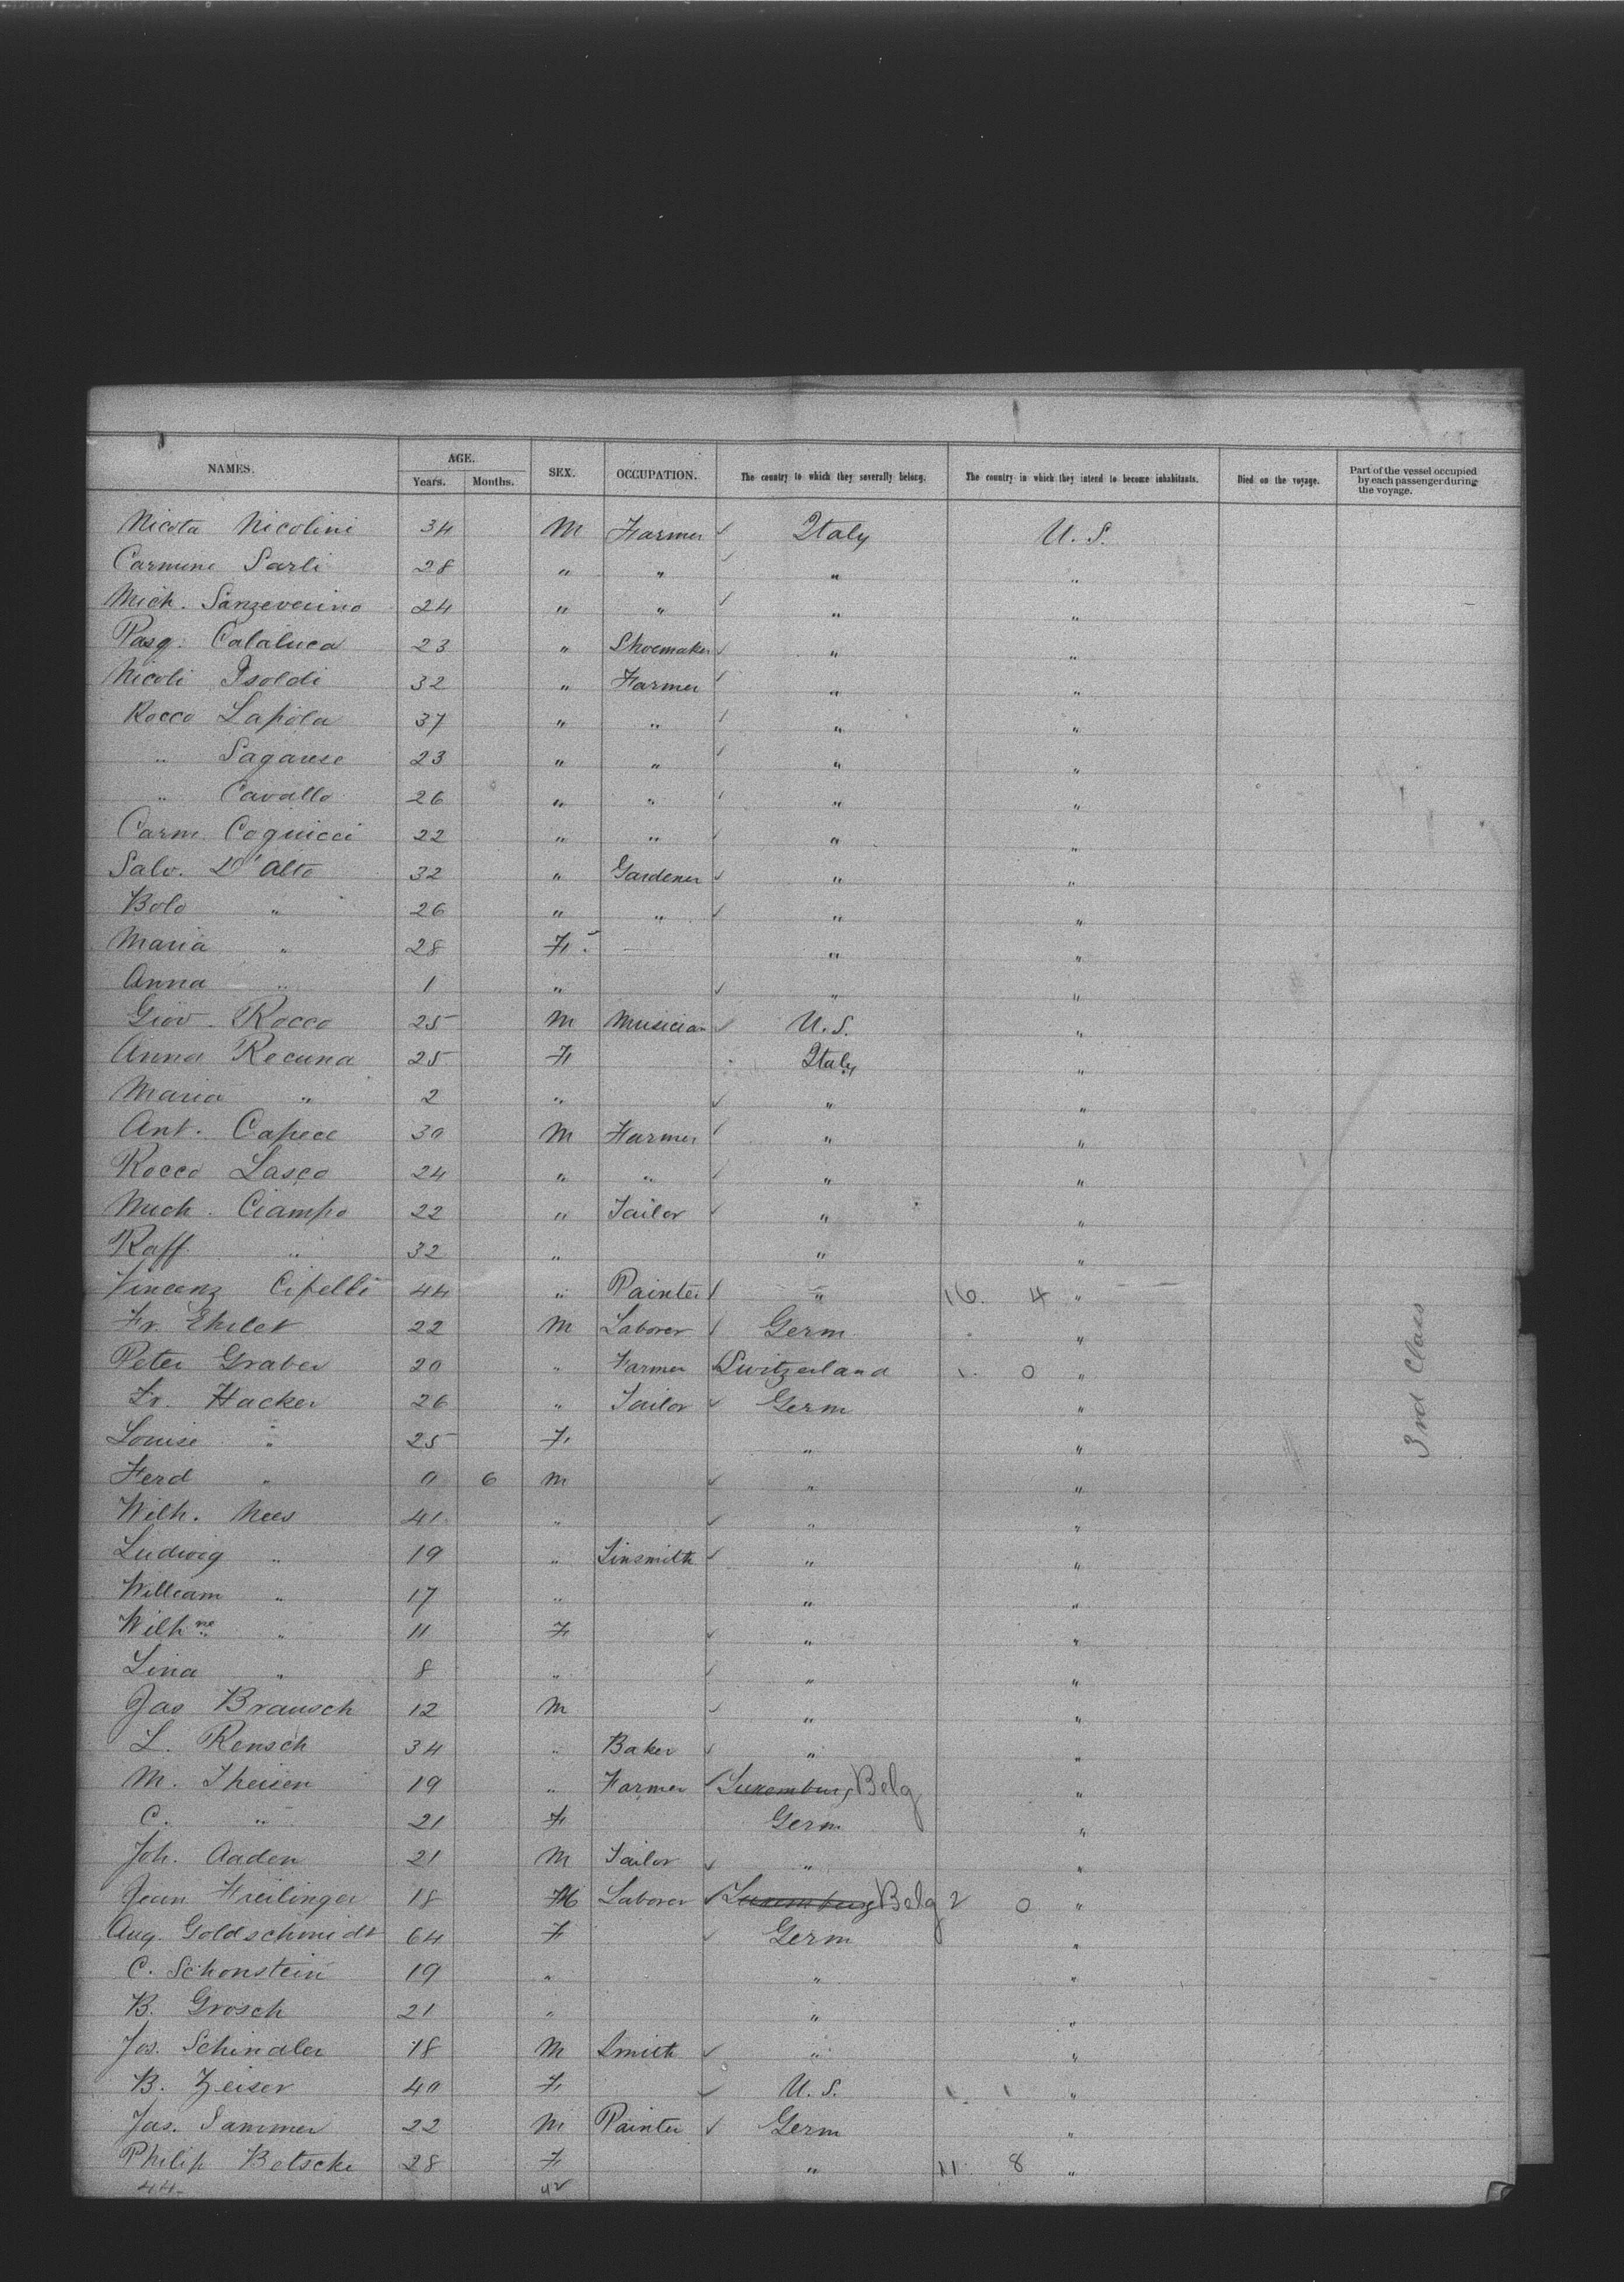 NAMES. AGE. SEX. OCCUPATION. The country to which they severally belong. The country in which they intend to become inhabitants. Died on the voyage. Part of the vessel occupied by each passenger during the voyage.
Years. Months.
Nicota Nicolini 34 M Farmer ✓ Italy U. S.
Carmine Sarli 28 " " ✓ " "
Mich. Sanzeverino 24 " " ✓ " "
Pasq. Calaluca 23 " Shoemaker ✓ " "
Nicoli Isoldi 32 " Farmer ✓ " "
Rocco Lapola 37 " " ✓ " "
" Saganese 23 " " ✓ " "
" Cavallo 26 " " ✓ " "
Carm. Coguicci 22 " " ✓ " "
Salv. D'Alto 32 " Gardener ✓ " "
Bolo " 26 " " ✓ " "
Maria " 28 F. " "
Anna " 1 " ✓ " "
Giov. Rocco 25 M Musician ✓ U. S. "
Anna Recuna 25 F Italy "
Maria " 2 " ✓ " "
Ant. Capece 30 M Farmer ✓ " "
Rocco Lasco 24 " " ✓ " "
Mich. Ciampo 22 " Tailor ✓ " "
Raff. " 32 " " "
Vincenz Cipelli 44 " Painter ✓ " 16. 4 "
Fr. Ehrlet 22 M Laborer ✓ Germ. "
Peter Graber 20 " Farmer ✓ Switzerland 1. 0 "
Fr. Hacker 26 " Tailor ✓ Germ "
Louise " 25 F. " "
Ferd " 0 6 M ✓ " "
Wilh. Nees 41 " ✓ " "
Ludwig " 19 " Tinsmith ✓ " "
William " 17 " " "
Wilhne " 11 F ✓ " "
Lina " 8 " ✓ " "
Jas Brausch 12 M ✓ " "
L. Rensch 34 " Baker ✓ " "
M. Theisen 19 " Farmer ✓ Luxemburg Belg "
C. " 21 F Germ. "
Joh. Aaden 21 M Tailor ✓ " "
Jean Freilinger 18 M Laborer ✓ Luxemburg Belg 2 0 "
Aug. Goldschmidt 64 F ✓ Germ "
C. Schonstein 19 " " "
B. Grosch 21 " " "
Jos. Schindler 18 M Smith ✓ " "
B. Zeiser 40 F. ✓ U. S. 1 1 "
Jas. Sammer 22 M Painter ✓ Germ "
Philip Betscke 28 F " 11. 8 "
44 42
3rd Class